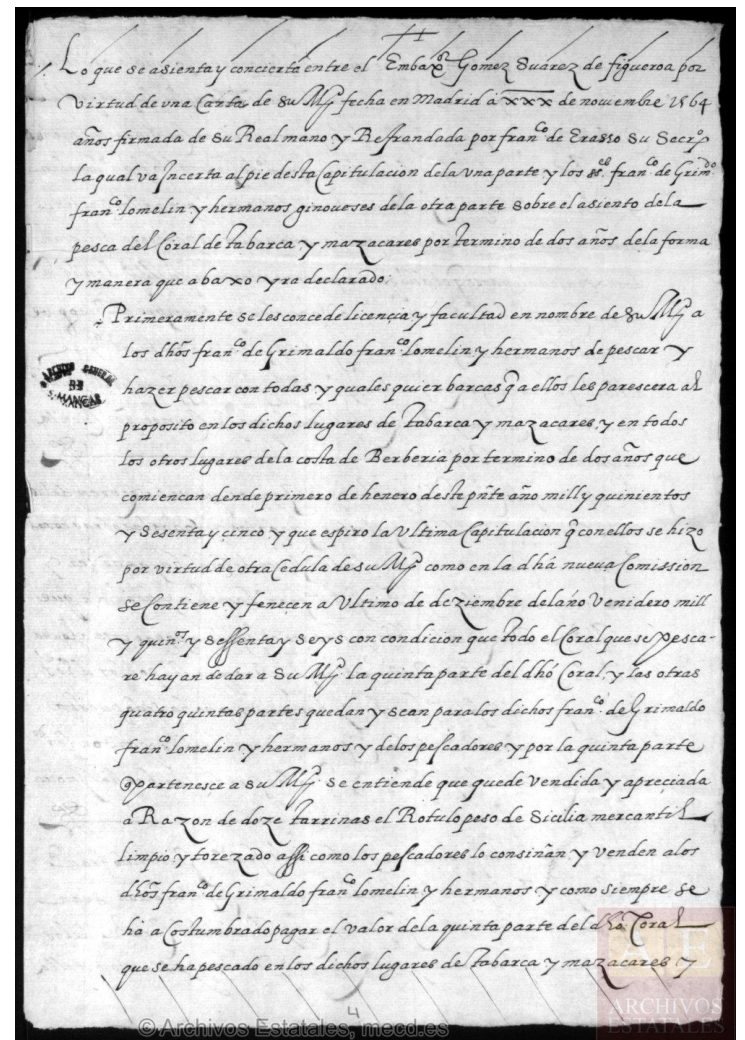 Lo que se asienta y concierta entre el Embaxor Gomez Suarez de figueroa por
virtud de vna Carta de su Mgd fecha en Madrid a xxx de nouiembre 1564
años firmada de su Real mano y Refrandada por franco de Erasso su Secrio
la qual va Incerta al pie desta Capitulacion de la vna parte y los sres franco de Grimdo
franco lomelin y hermanos ginoueses de la otra parte sobre el asiento de la
pesca del Coral de tabarca y mazacares por termino de dos años de la forma
y manera que abaxo yra declarado.
Primeramente se les concede licençia y facultad en nombre de su Mgd a
los dhos franco de Grimaldo franco lomelin y hermanos de pescar y
hazer pescar con todas y quales quier barcas q a ellos les parescera al
proposito en los dichos lugares de tabarca y mazacares, y en todos
los otros lugares de la costa de Berberia por termino de dos años que
comiencan dende primero de henero deste pñte año mill y quinientos
y sesenta y cinco y que espiro la vltima Capitulacion q con ellos se hizo
por virtud de otra Cedula de su Mgd como en la dha nueua Comission
se Contiene y fenecen a vltimo de deziembre del año venidero mill
y quinos y sessenta y seys con condicion que todo el Coral que se pesca-
re hayan de dar a su Mgd la quinta parte del dho Coral, y las otras
quatro quintas partes quedan y sean para los dichos franco de Grimaldo
franco lomelin y hermanos y de los pescadores y por la quinta parte
q partenesce a su Mgd se entiende que quede vendida y apreçiada
a Razon de doze tarrinas el Rotulo peso de Sicilia mercantil
limpio y torezado assi como los pescadores lo consiñan y venden a los
dhos franco de Grimaldo franco lomelin y hermanos y como siempre se
ha acostumbrado pagar el valor de la quinta parte del dho Coral
que se ha pescado en los dichos lugares de tabarca y mazacares y
ARCHIVO GENERAL
DE
SIMANCAS
4
©Archivos Estatales, mecd.es
ARCHIVOS
ESTATALES